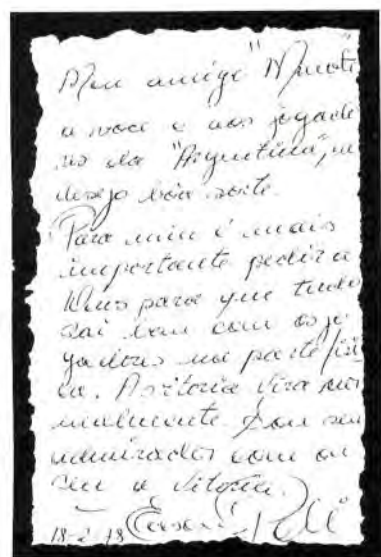 Meu amigo "Menoti"
a voce e aos jogado
res da "Argentina", eu
desejo bôa sorte.
Para mim é mais
importante pedir a
Deus para que tudo
sai bem com os jo
gadores na parte fisi
ca. A vitoria vira nor
malmente. Sou seu
admirador com ou
sem a vitoria.
18-2-78 Edson "Pelé"